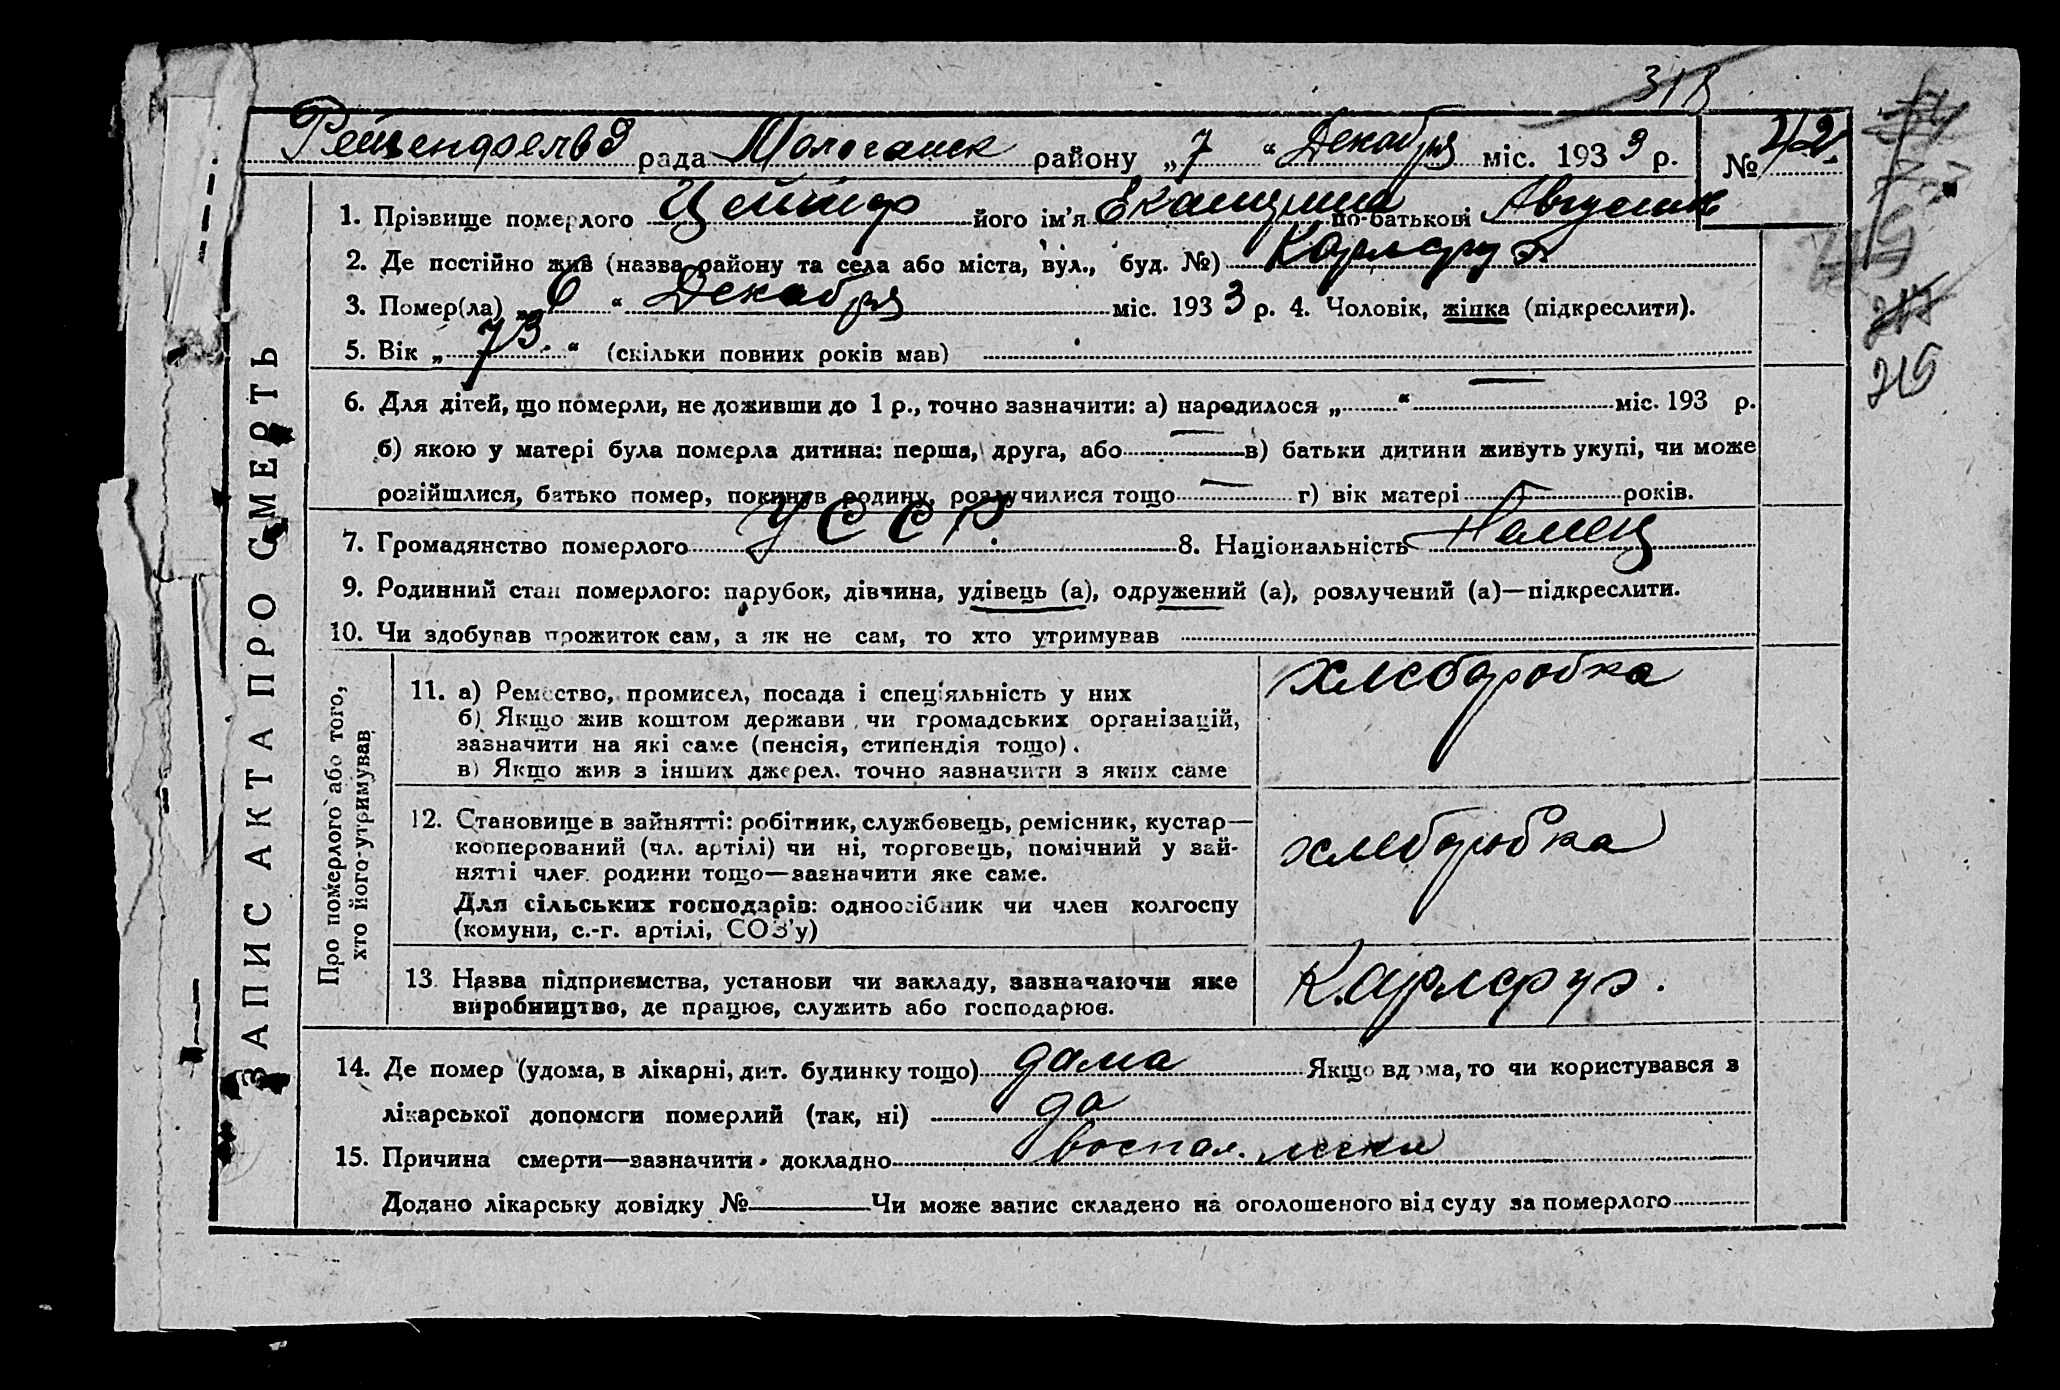 318
Рейхенфельд рада Мологанск району „7“ Декабря міс. 1933 р. № 42
1. Прізвище померлого Цейнф його ім'я Екатерина по-батькові Августик
2. Де постійно жив (назва району та села або міста, вул., буд. №) Карлсруэ
3. Помер(ла) „6“ Декабря міс. 1933 р. 4. Чоловік, жінка (підкреслити).
5. Вік „73“ (скільки повних років мав)
215
6. Для дітей, що померли, не доживши до 1 р., точно зазначити: а) народилося „ “ — міс. 193 р.
б) якою у матері була померла дитина: перша, друга, або — в) батьки дитини живуть укупі, чи може
розійшлися, батько помер, покинув родину, розлучилися тощо — г) вік матері — років.
7. Громадянство померлого УССР. 8. Національність Немец
9. Родинний стан померлого: парубок, дівчина, удівець (а), одружений (а), розлучений (а)—підкреслити.
10. Чи здобував прожиток сам, а як не сам, то хто утримував
ЗАПИС АКТА ПРО СМЕРТЬ
Про померлого або того,
хто його утримував
11. а) Ремество, промисел, посада і спеціяльність у них
б) Якщо жив коштом держави чи громадських організацій,
зазначити на які саме (пенсія, стипендія тощо).
в) Якщо жив з інших джерел, точно зазначити з яких саме
хлеборобка
12. Становище в зайнятті: робітник, службовець, ремісник, кустар—
кооперований (чл. артілі) чи ні, торговець, помічний у зай-
нятті член родини тощо—зазначити яке саме.
Для сільських господарів: одноосібник чи член колгоспу
(комуни, с.-г. артілі, СОЗ'у)
хлеборобка
13. Назва підприємства, установи чи закладу, зазначаючи яке
виробництво, де працює, служить або господарює.
Карлсруэ.
14. Де помер (удома, в лікарні, дит. будинку тощо) дома Якщо вдома, то чи користувався з
лікарської допомоги померлий (так, ні) да
15. Причина смерти—зазначити докладно воспал. легких
Додано лікарську довідку № Чи може запис складено на оголошеного від суду за померлого